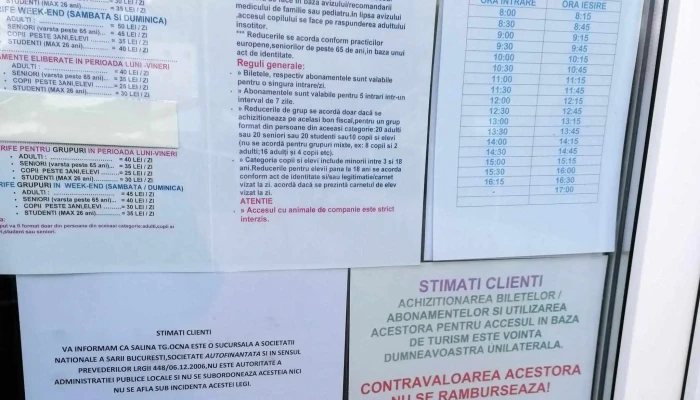 RIFE WEEK-END (SAMBATA SI DUMINICA)
ADULTI : = 50 LEI / ZI
SENIORI (varsta peste 65 ani) = 45 LEI / ZI
COPII PESTE 3ANI,ELEVI = 35 LEI / ZI
STUDENTI (MAX 26 ani) = 40 LEI / ZI
AMENTE ELIBERATE IN PERIOADA LUNI -VINERI
ADULTI : = 40 LEI / ZI
SENIORI (varsta peste 65 ani) = 35 LEI / ZI
COPII PESTE 3ANI,ELEVI = 25 LEI / ZI
STUDENTI (MAX 26 ani) = 30 LEI / ZI
RIFE PENTRU GRUPURI IN PERIOADA LUNI-VINERI
ADULTI : = 40 LEI / ZI
SENIORI (varsta peste 65 ani) = 35 LEI / ZI
COPII PESTE 3ANI,ELEVI = 25 LEI / ZI
STUDENTI (MAX 26 ani) = 30 LEI / ZI
RIFE GRUPURI IN WEEK-END (SAMBATA / DUMINICA)
ADULTI : = 45 LEI / ZI
SENIORI (varsta peste 65 ani)... = 40 LEI / ZI
COPII PESTE 3ANI,ELEVI = 30 LEI / ZI
STUDENTI (MAX 26 ani) = 35 LEI / ZI
pul va fi format doar din persoane din aceeasi categorie:adulti,copii si
i,studenti sau seniori.
se face in baza avizului/recomandarii
medicului de familie sau pediatru.In lipsa avizului
accesul copilului se face pe raspunderea adultului
insotitor.
*** Reducerile se acorda conform practicilor
europene,seniorilor de peste 65 de ani,in baza unui
act de identitate.
Reguli generale:
» Biletele, respectiv abonamentele sunt valabile
pentru o singura intrare/zi.
» Abonamentele sunt valabile pentru 5 intrari intr-un
interval de 7 zile.
» Reducerile de grup se acordă doar dacă se
achizitionează pe acelasi bon fiscal,pentru un grup
format din persoane din aceeasi categorie:20 adulti
sau 20 seniori sau 20 studenti sau10 copii si elevi
(nu se acordă pentru grupuri mixte, ex: 8 copii si 2
adulti;16 adulti si 4 copii etc).
» Categoria copii si elevi include minorii intre 3 si 18
ani.Reducerile pentru elevii pana la 18 ani se acorda
conform act de identitate si/sau legitimatie/carnet
vizat la zi. acordă dacă se prezintă carnetul de elev
vizat la zi.
ATENTIE
» Accesul cu animale de companie este strict
interzis.
ORA INTRARE ORA IESIRE
8:00 8:15
8:30 8:45
9:00 9:15
9:30 9:45
10:00 10:15
10:30 10:45
11:00 11:15
11:30 11:45
12:00 12:15
12:30 12:45
13:00 13:15
13:30 13:45
14:00 14:15
14:30 14:45
15:00 15:15
15:30 16:00
16:15 16:30
17:00
STIMATI CLIENTI
VA INFORMAM CA SALINA TG.OCNA ESTE O SUCURSALA A SOCIETATII
NATIONALE A SARII BUCURESTI,SOCIETATE AUTOFINANTATA SI IN SENSUL
PREVEDERILOR LRGII 448/06.12.2006,NU ESTE AUTORITATE A
ADMINISTRATIEI PUBLICE LOCALE SI NU SE SUBORDONEAZA ACESTEIA NICI
NU SE AFLA SUB INCIDENTA ACESTEI LEGI.
STIMATI CLIENTI
ACHIZITIONAREA BILETELOR /
ABONAMENTELOR SI UTILIZAREA
ACESTORA PENTRU ACCESUL IN BAZA
DE TURISM ESTE VOINTA
DUMNEAVOASTRA UNILATERALA.
CONTRAVALOAREA ACESTORA
NU SE RAMBURSEAZA!